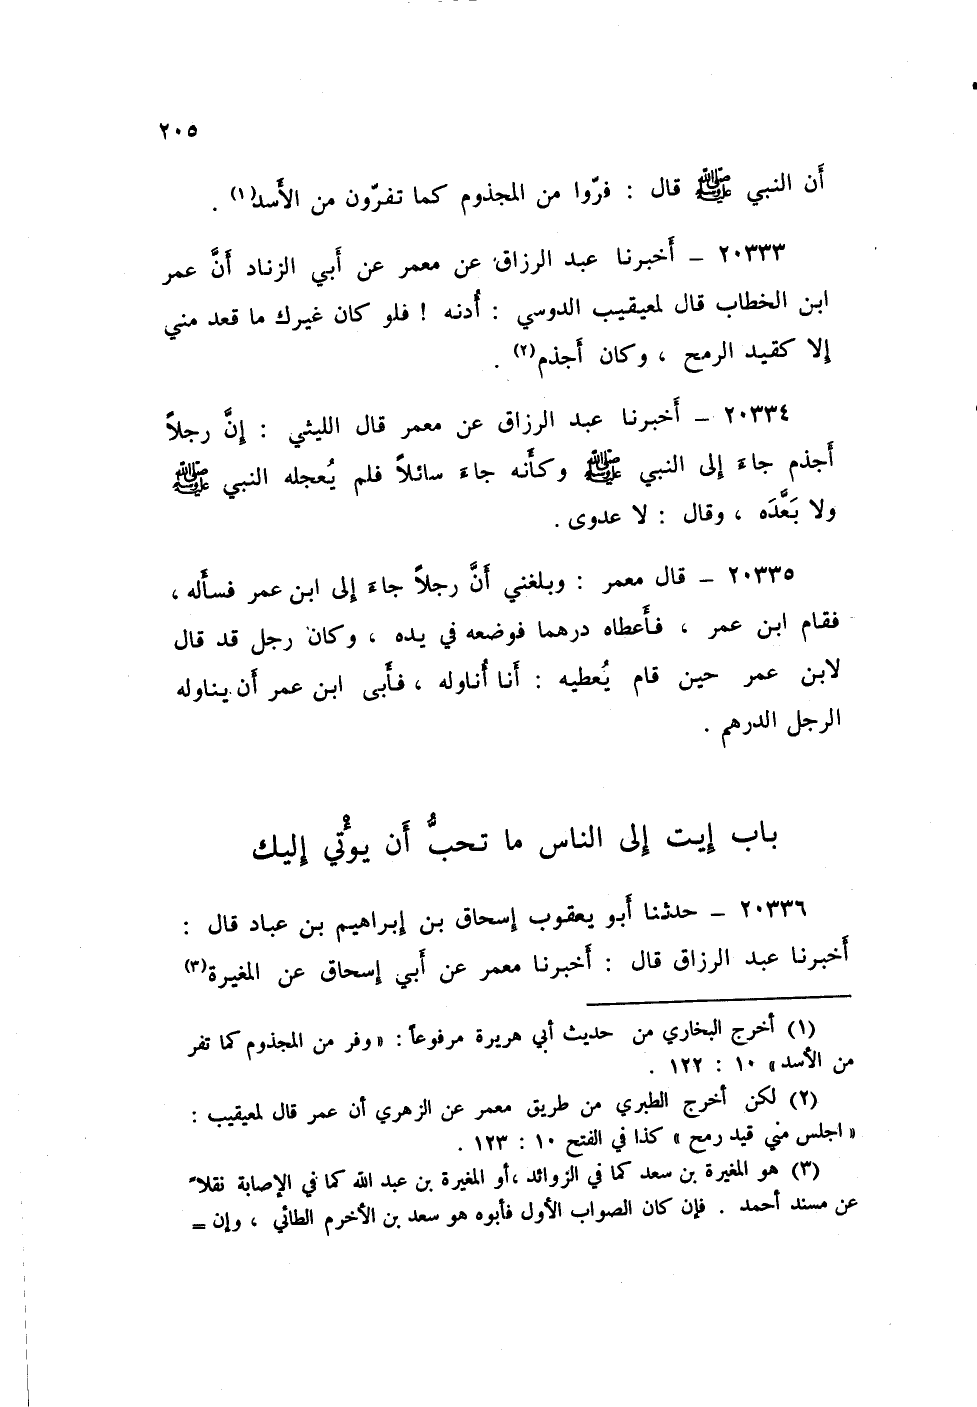 ٢٠٥
أَن النبي ﷺ قال : فرّوا من المجذوم كما تفرّون من الأَسد(١) .
٢٠٣٣٣ – أَخبرنا عبد الرزاق عن معمر عن أَبي الزناد أَنَّ عمر
ابن الخطاب قال لمعيقيب الدوسي : أُدنه ! فلو كان غيرك ما قعد مني
إلا كقيد الرمح ، وكان أَجذم(٢) .
٢٠٣٣٤ – أَخبرنا عبد الرزاق عن معمر قال الليثي : إِنَّ رجلاً
أَجذم جاءَ إِلى النبي ﷺ وكأَنه جاءَ سائلاً فلم يُعجله النبي ﷺ
ولا بَعَّدَه ، وقال : لا عدوى .
٢٠٣٣٥ – قال معمر : وبلغني أَنَّ رجلاً جاءَ إِلى ابن عمر فسأَله ،
فقام ابن عمر ، فأَعطاه درهما فوضعه في يده ، وكان رجل قد قال
لابن عمر حين قام يُعطيه : أَنا أُناوله ، فأَبى ابن عمر أَن يناوله
الرجل الدرهم .
باب إِيت إِلى الناس ما تحبُّ أَن يؤُتي إِليك
٢٠٣٣٦ – حدثنا أَبو يعقوب إسحاق بن إبراهيم بن عباد قال :
أَخبرنا عبد الرزاق قال : أَخبرنا معمر عن أَبي إسحاق عن المغيرة(٣)
(١) أخرج البخاري من حديث أبي هريرة مرفوعاً : «وفر من المجذوم كما تفر
من الأسد» ١٠ : ١٢٢ .
(٢) لكن أخرج الطبري من طريق معمر عن الزهري أن عمر قال لمعيقيب :
« اجلس مني قيد رمح » كذا في الفتح ١٠ : ١٢٣ .
(٣) هو المغيرة بن سعد كما في الزوائد ،أو المغيرة بن عبد الله كما في الإصابة نقلاً
عن مسند أحمد . فإن كان الصواب الأول فأبوه هو سعد بن الأخرم الطائي ، وإن =